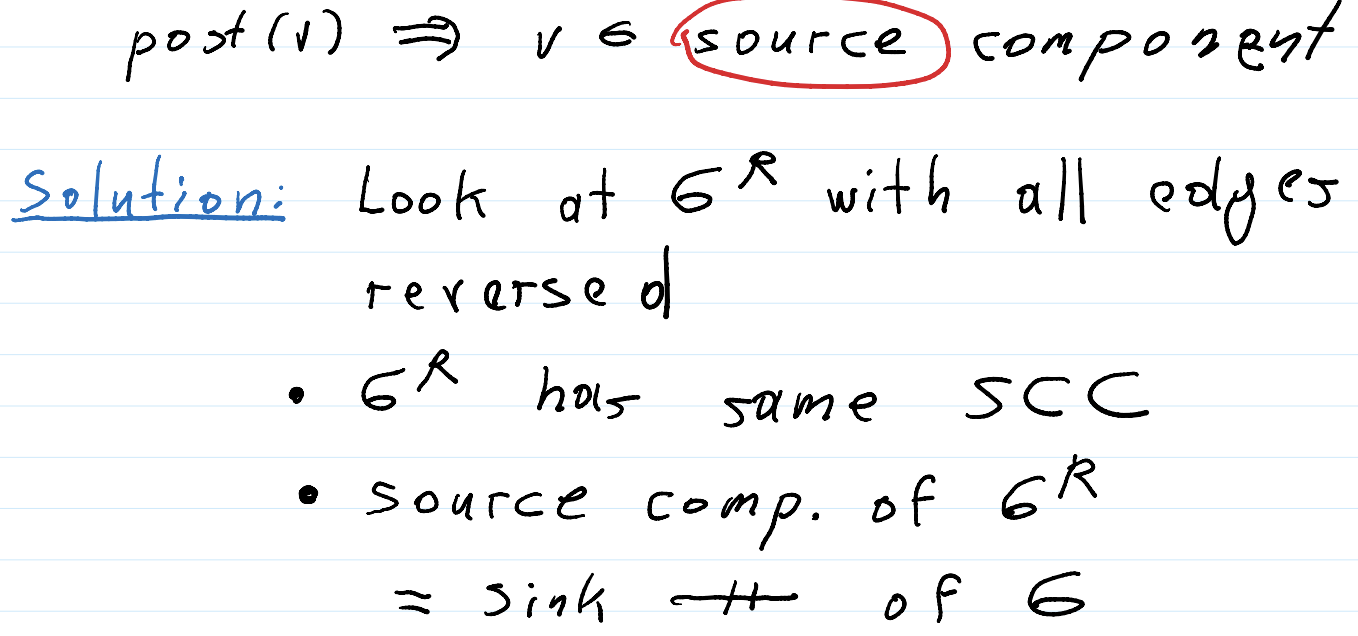 post(v) ⇒ v ∈ source component
Solution: Look at G^R with all edges
reversed
• G^R has same SCC
• source comp. of G^R
= sink —〃— of G